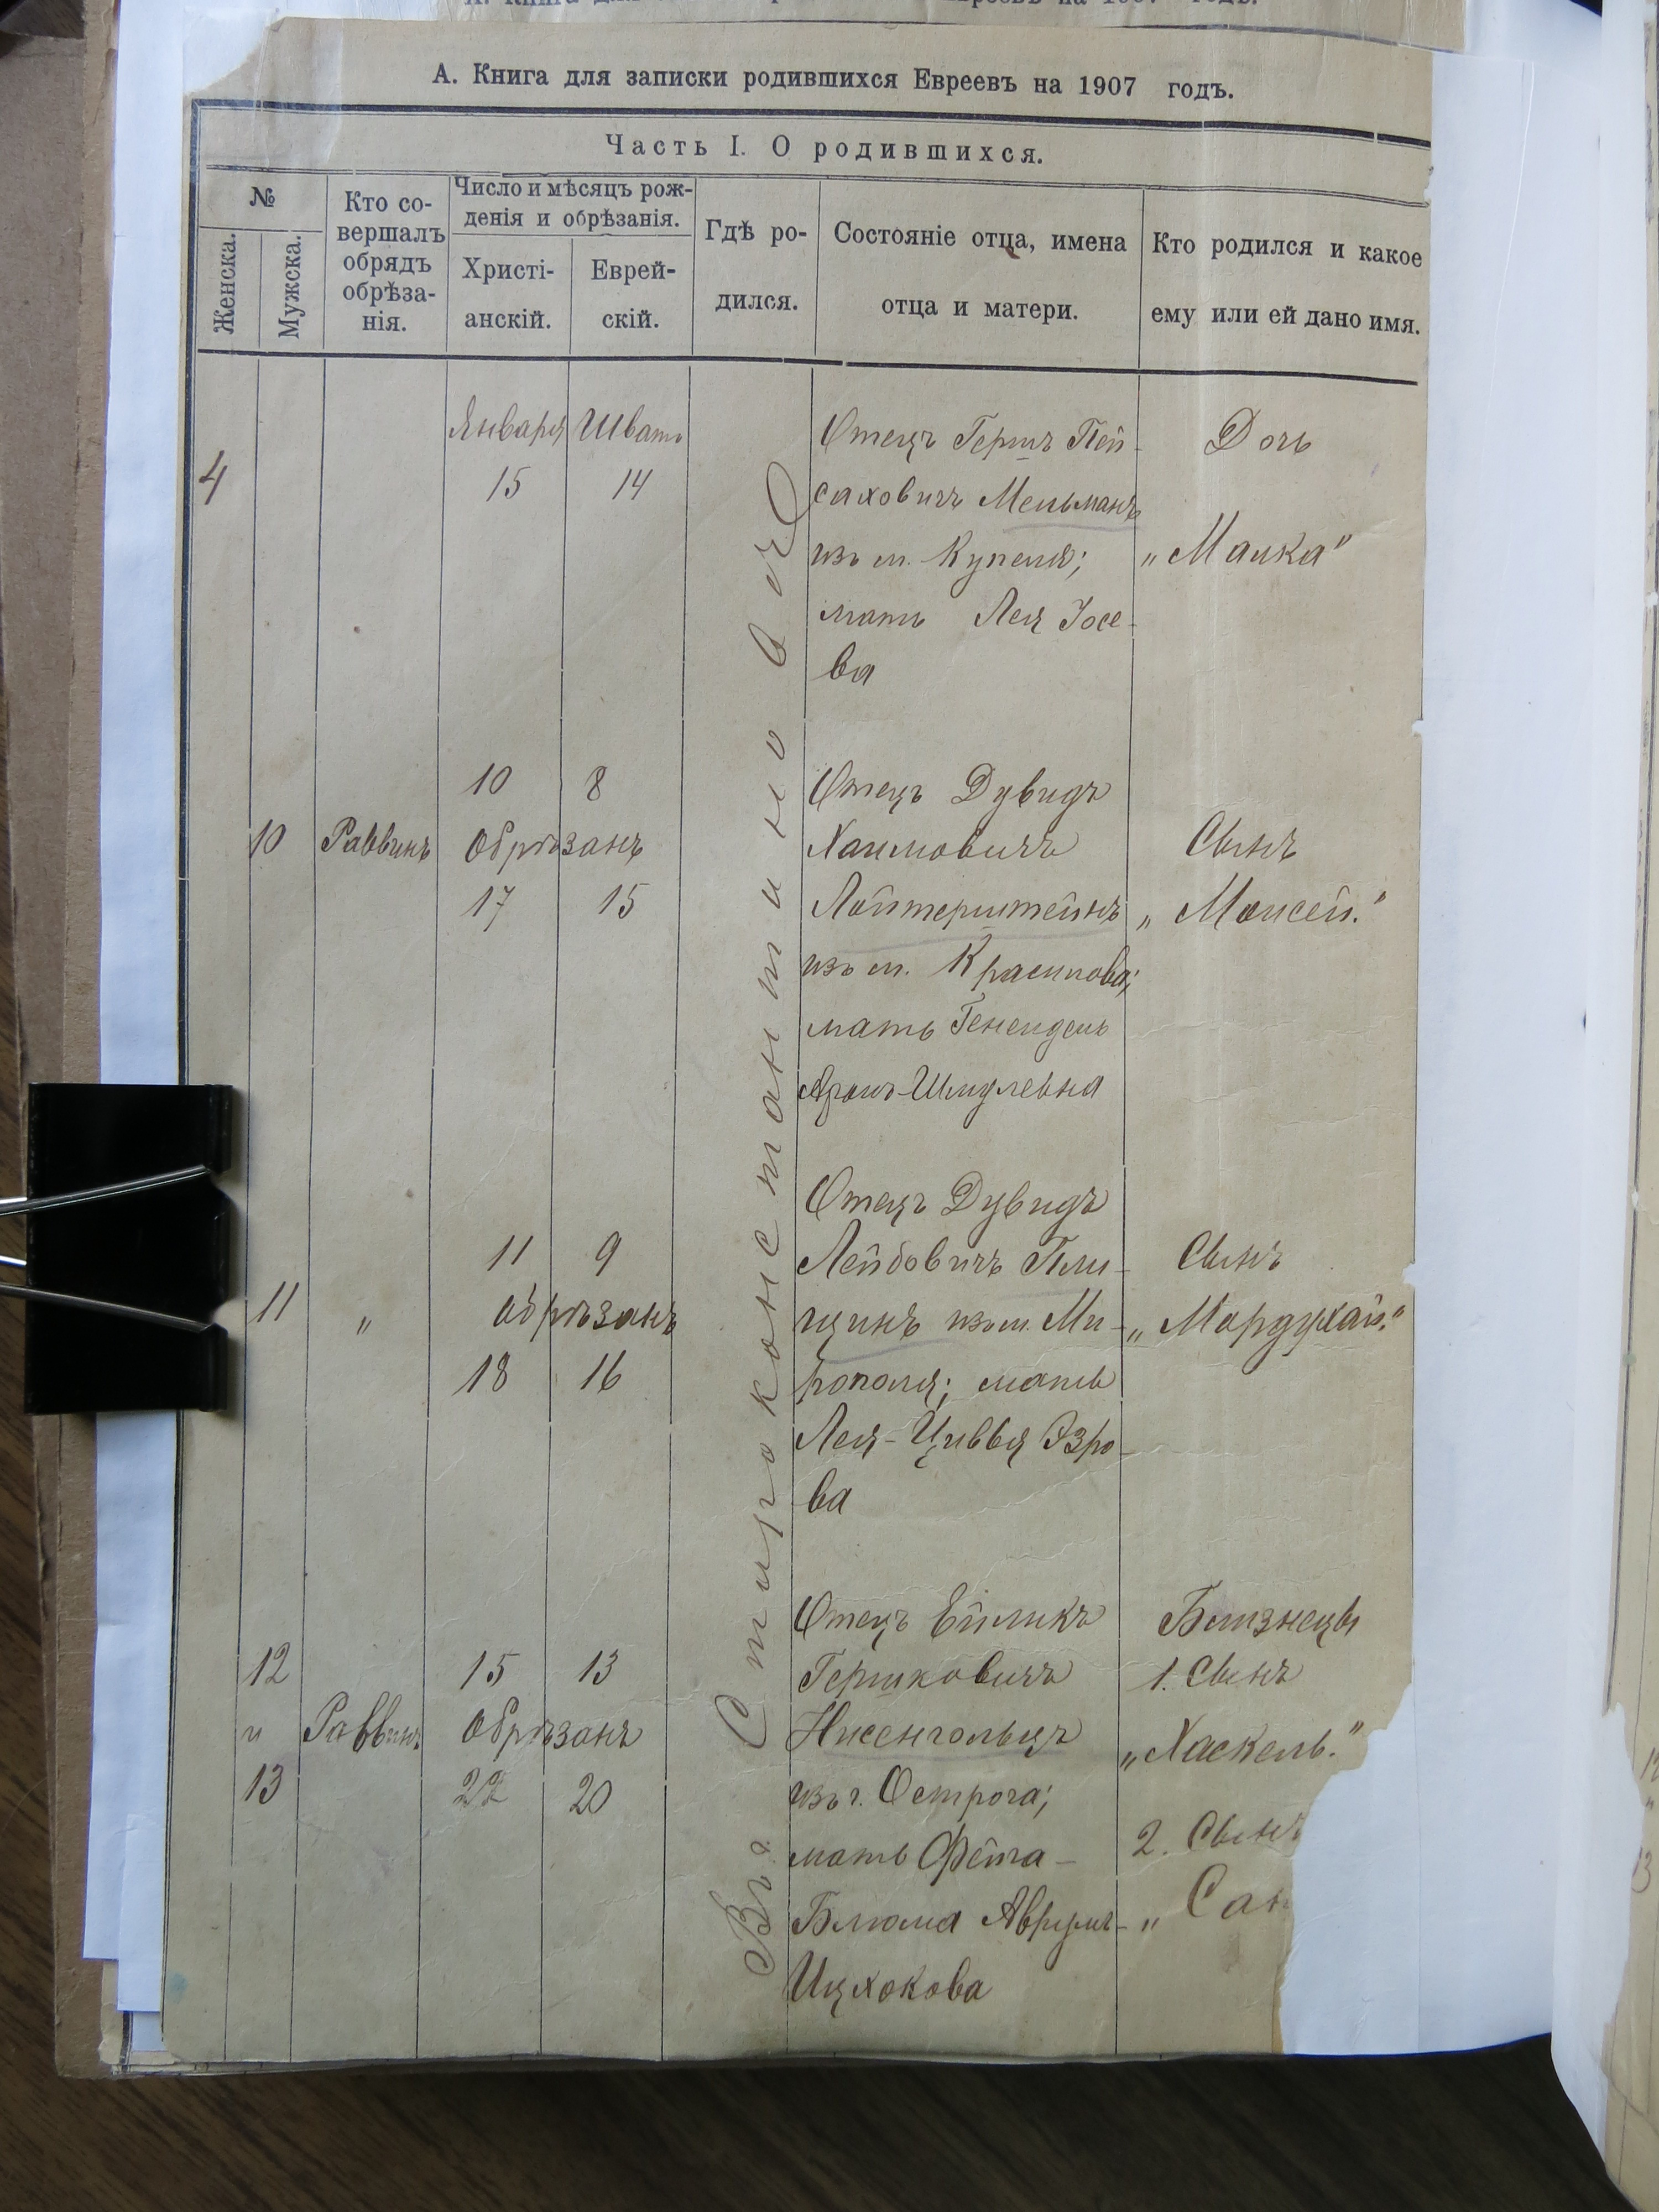 А. Книга для записки родившихся Евреевъ на 1907 годъ.
Часть I. О родившихся.
№
Женска.
Мужска.
Кто со-
вершалъ
обрядъ
обрѣза-
нія.
Число и мѣсяцъ рож-
денія и обрѣзанія.
Христі-
анскій.
Еврей-
скій.
Гдѣ ро-
дился.
Состояніе отца, имена
отца и матери.
Кто родился и какое
ему или ей дано имя.
Въ г. Староконстантиновѣ
Января Шватъ
4 15 14
Отецъ Гершъ Пей-
саховичъ Мельманъ
изъ м. Купеля;
мать Лея Іосе-
ва
Дочь
„Малка"
10 8
10 Раввинъ Обрѣзанъ
17 15
Отецъ Дувидъ
Хаимовичъ
Лойтерштейнъ
изъ м. Красилова;
мать Генендель
Аронъ-Шмулевна
Сынъ
„Моисей."
11 9
11 „ обрѣзанъ
18 16
Отецъ Дувидъ
Лейбовичъ Гли-
щинъ изъ м. Ми-
рополя; мать
Лея-Цивья Эзро-
ва
Сынъ
„Мордухай."
12 15 13
и Раввинъ Обрѣзанъ
13 22 20
Отецъ Ейликъ
Гершковичъ
Нисенгольцъ
изъ г. Острога;
мать Фейга-
Блюма Аврумъ-
Ицхокова
Близнецы
1. Сынъ
„Хаскель."
2. Сынъ
„Сан